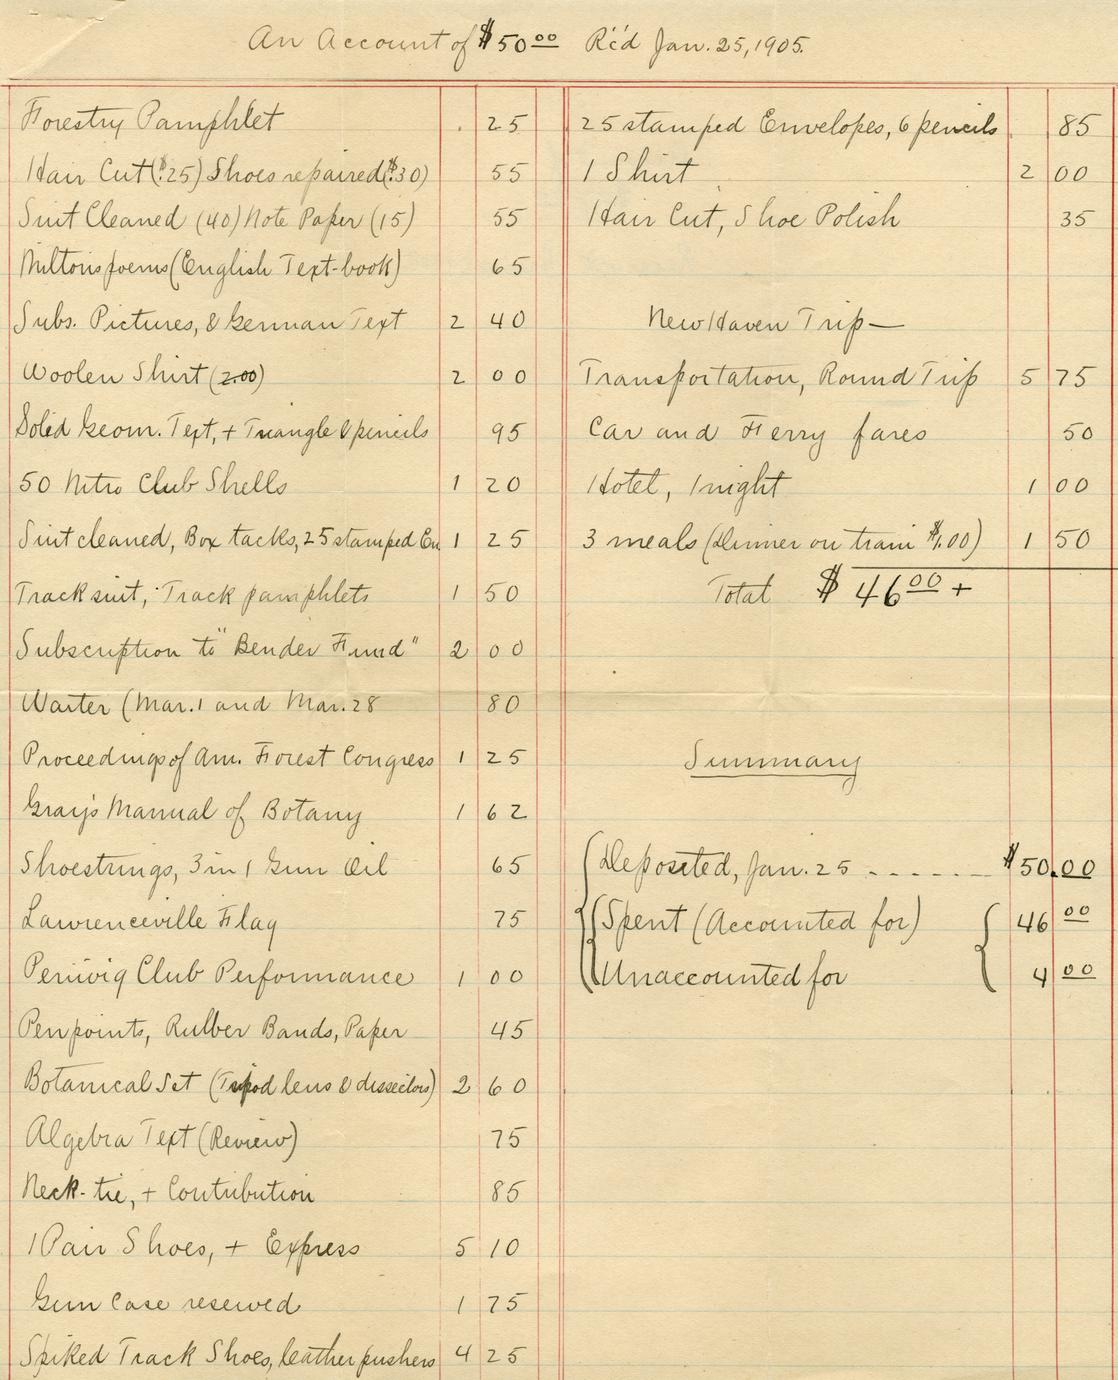 An Account of $50 00 Rc'd Jan. 25, 1905.
Forestry Pamphlet . 25
Hair Cut ($.25) Shoes repaired ($.30) 55
Suit Cleaned (40) Note Paper (15) 55
Milton's poems (English Text-book) 65
Subs. Pictures, & German Text 2 40
Woolen Shirt (2.00) 2 00
Solid Geom. Text, + Triangle & pencils 95
50 Nitro Club Shells 1 20
Suit cleaned, Box tacks, 25 stamped En 1 25
Track suit, Track pamphlets 1 50
Subscription to "Bender Fund" 2 00
Waiter (Mar. 1 and Mar. 28 80
Proceedings of Am. Forest Congress 1 25
Gray's Manual of Botany 1 62
Shoestrings, 3 in 1 Gun Oil 65
Lawrenceville Flag 75
Periwig Club Performance 1 00
Pen points, Rubber Bands, Paper 45
Botanical Set (Tripod lens & dissectors) 2 60
Algebra Text (Review) 75
Neck-tie, + Contribution 85
1 Pair Shoes, + Express 5 10
Gun Case resewed 1 75
Spiked Track Shoes, leather pushers 4 25
25 stamped Envelopes, 6 pencils 85
1 Shirt 2 00
Hair Cut, Shoe Polish 35
New Haven Trip—
Transportation, Round Trip 5 75
Car and Ferry fares 50
Hotel, 1 night 1 00
3 meals (Dinner on train $1.00) 1 50
Total $ 46 00 +
Summary
Deposited, Jan. 25 - - - - - - $50.00
Spent (Accounted for) 46 00
Unaccounted for 4 00